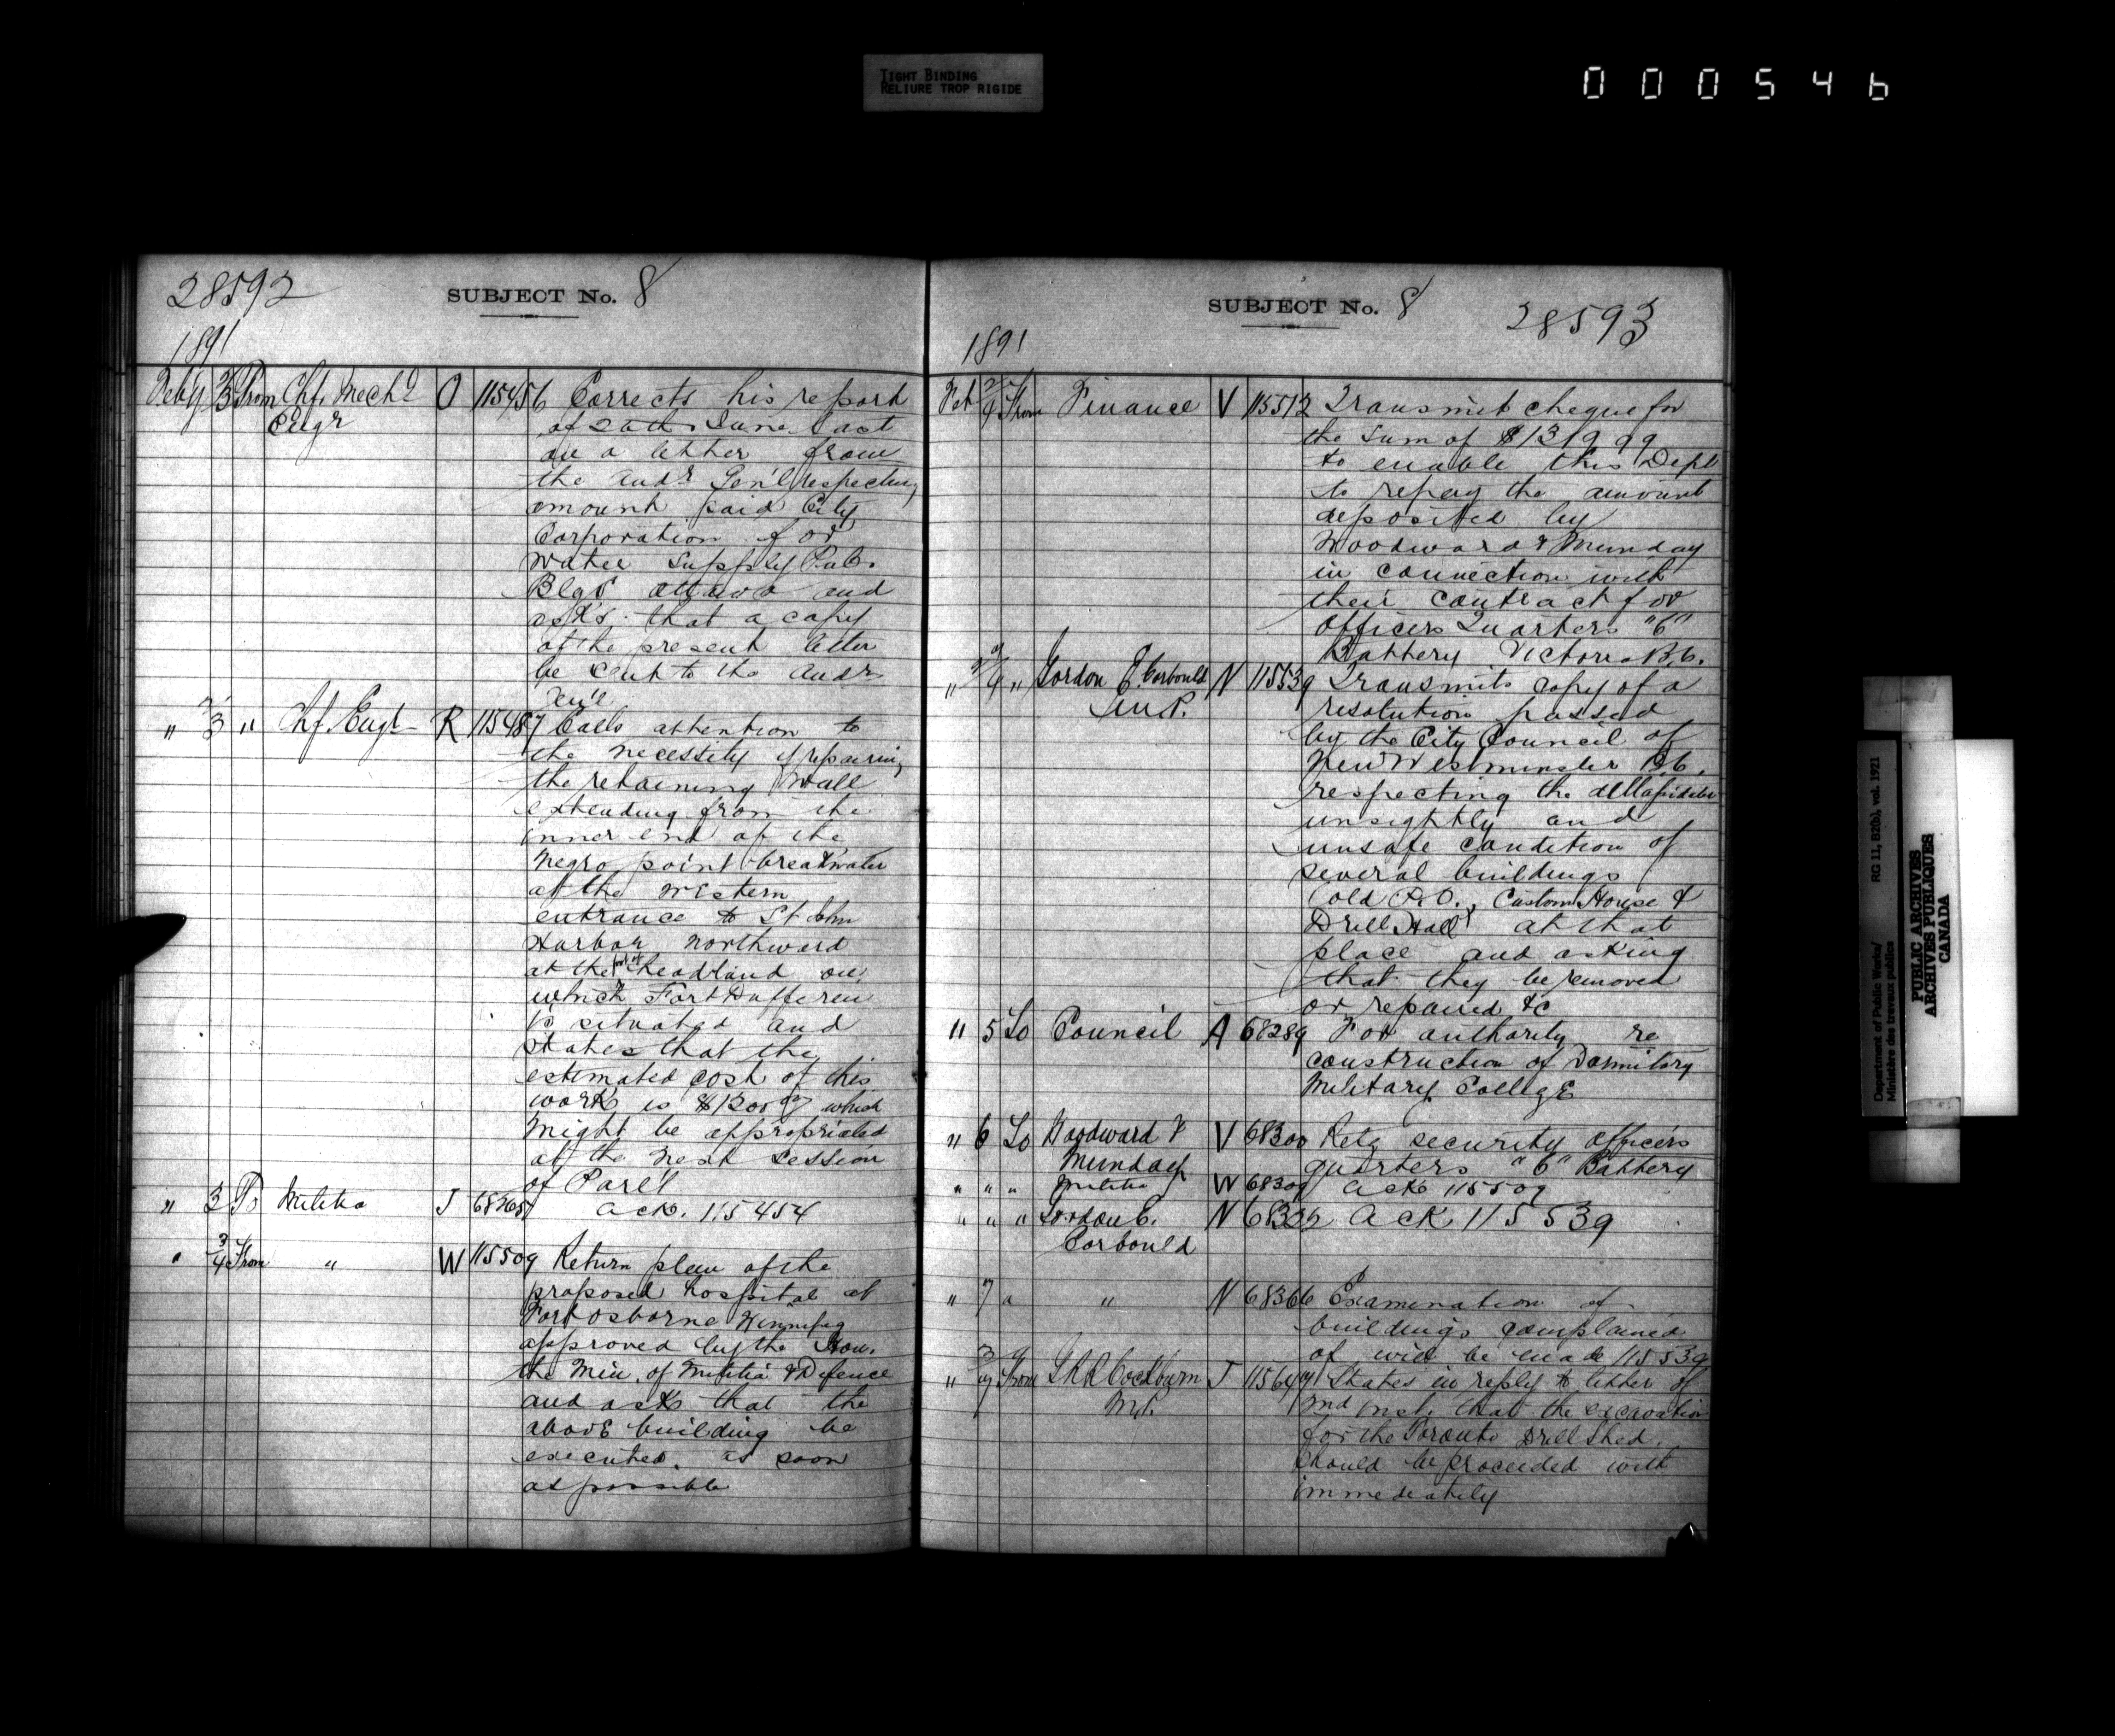 TIGHT BINDING
RELIURE TROP RIGIDE
000546
28592
SUBJECT No. 8
1891
Feb'y 2/3 From Chf. Mech'l O 115456 Corrects his report
Engr of 20th June last
on a letter from
the Audr Gen'l respecting
amount paid City
Corporation for
Water Supply Pub.
Blgs Ottawa and
asks that a copy
of the present letter
be sent to the Audr
Gen'l
" 3 " Chf. Engr R 115487 Calls attention to
the necessity of repairing
the retaining Wall
extending from the
inner end of the
Negro point breakwater
at the Western
entrance to St John
Harbor northward
at the foot of headland on
which Fort Dufferin
is situated and
states that the
estimated cost of this
work is $1200 which
might be appropriated
at the next session
of Parl't
" 3 To Militia J 68265 Ack. 115454
" 3/4 From " W 115509 Return plan of the
proposed hospital at
Fort Osborne Winnipeg
approved by the Hon.
the Min. of Militia & Defence
and asks that the
above building be
executed as soon
as possible
SUBJECT No. 8
28593
1891
Feb 2/4 From Finance V 115512 Transmit cheque for
the sum of $1319 99
to enable this Dept
to repay the amount
deposited by
Woodward & Munday
in connection with
their contract for
Officers Quarters "C"
Battery Victoria B.C.
" 2/4 " Gordon E. Corbould N 115539 Transmits copy of a
M.P. resolution passed
by the City Council of
New Westminster B.C.
respecting the dillapidated
unsightly and
unsafe condition of
several buildings
(old P.O., Custom House &
Drill Hall) at that
place and asking
that they be removed
or repaired &c
" 5 To Council A 68289 For authority re
construction of Dormitory
Military College
" 6 To Woodward & V 68300 Retg security officers
Munday quarters "C" Battery
" " " Militia W 68309 Ack 115509
" " " Gordon E. N 68302 Ack 115539
Corbould
" 7 " " N 68366 Examination of
buildings complained
of will be made 115539
" 3/7 From G R R Cockburn J 115649 States in reply to letter of
M.P. 2nd inst. that the excavation
for the Toronto Drill Shed
should be proceeded with
immediately
Department of Public Works/
Ministère des travaux publics
RG 11, B2(b), vol. 1921
PUBLIC ARCHIVES
ARCHIVES PUBLIQUES
CANADA